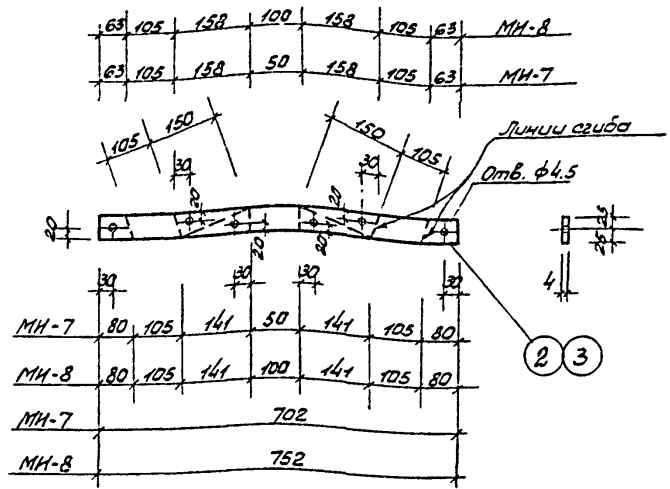 63 105 158 100 158 105 63 МИ-8
63 105 158 50 158 105 63 МИ-7
105 150 150 105
Линии сгиба
30 30
Отв. ϕ4.5
20 20 20 20 20 25 25
30 30 30 30 4
МИ-7 80 105 141 50 141 105 80
2 3
МИ-8 80 105 141 100 141 105 80
МИ-7 702
МИ-8 752